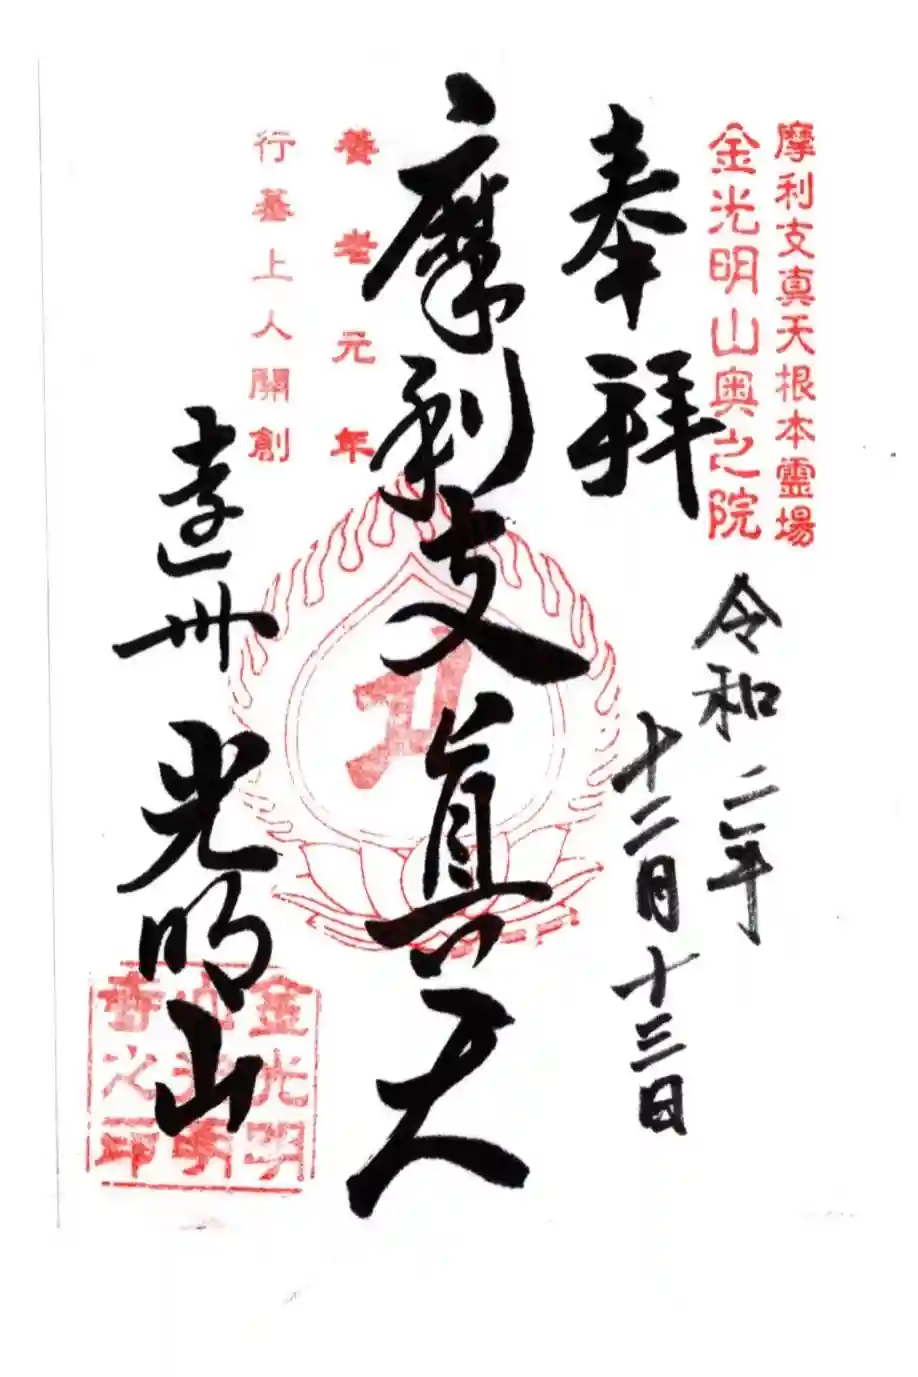 摩利支真天根本霊場
金光明山奥之院
奉拝
令和二年
十二月十三日
摩利支真天
養老元年
行基上人開創
遠州 光明山